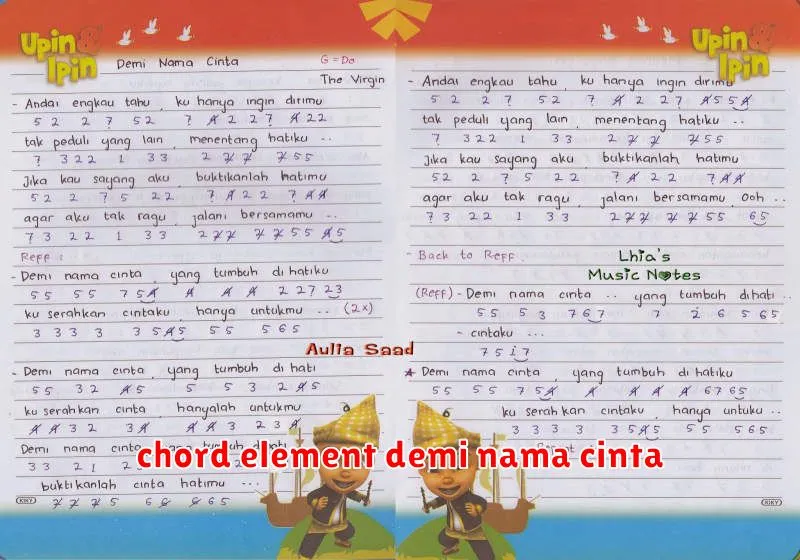 Upin & Ipin
Demi Nama Cinta
G = Do
The Virgin
- Andai engkau tahu, ku hanya ingin dirimu
5 2 2 7 5 2 7 4 2 2 7 4 2 2
tak peduli yang lain, menentang hatiku ..
7 3 2 2 1 3 3 2 7 7 7 5 5
Jika kau sayang aku, buktikanlah hatimu
5 2 2 7 5 2 2 7 4 2 2 7 4 4
agar aku tak ragu, jalani bersamamu ..
7 3 2 2 1 3 3 2 7 7 7 7 5 5 4 5
Reff :
- Demi nama cinta, yang tumbuh di hatiku
5 5 5 5 7 5 4 4 4 4 2 2 7 2 3
ku serahkan cintaku, hanya untukmu .. (2x)
3 3 3 3 3 5 4 5 5 5 5 6 5
Aulia Saad
- Demi nama cinta, yang tumbuh di hati
5 5 3 2 4 5 5 5 3 2 4 5
ku serahkan cinta, hanyalah untukmu
4 4 3 2 3 4 4 4 3 2 3 4
Demi nama cinta
3 3 2 1 2
buktikanlah cinta hatimu ...
7 7 7 5 6 6 6 6 5
KIKY
Upin & Ipin
- Andai engkau tahu, ku hanya ingin dirimu
5 2 2 7 5 2 7 4 2 2 7 4 5 5 4
tak peduli yang lain, menentang hatiku ..
7 3 2 2 1 3 3 2 7 7 7 5 5
Jika kau sayang aku, buktikanlah hatimu
5 2 2 7 5 2 2 7 4 2 2 7 4 4
agar aku tak ragu, jalani bersamamu, Ooh ..
7 3 2 2 1 3 3 2 7 7 7 7 5 5 6 5
- Back to Reff.
Lhia's
Music Notes
(Reff) - Demi nama cinta .. yang tumbuh di hati ..
5 5 5 3 7 6 7 7 2 6 5 6 5
- cintaku ...
7 5 i 7
* Demi nama cinta, yang tumbuh di hatiku
5 5 5 5 7 5 4 4 4 4 6 7 6 5
ku serahkan cintaku, hanya untuku ..
3 3 3 3 3 5 4 5 5 5 5 6 5
KIKY
chord element demi nama cinta